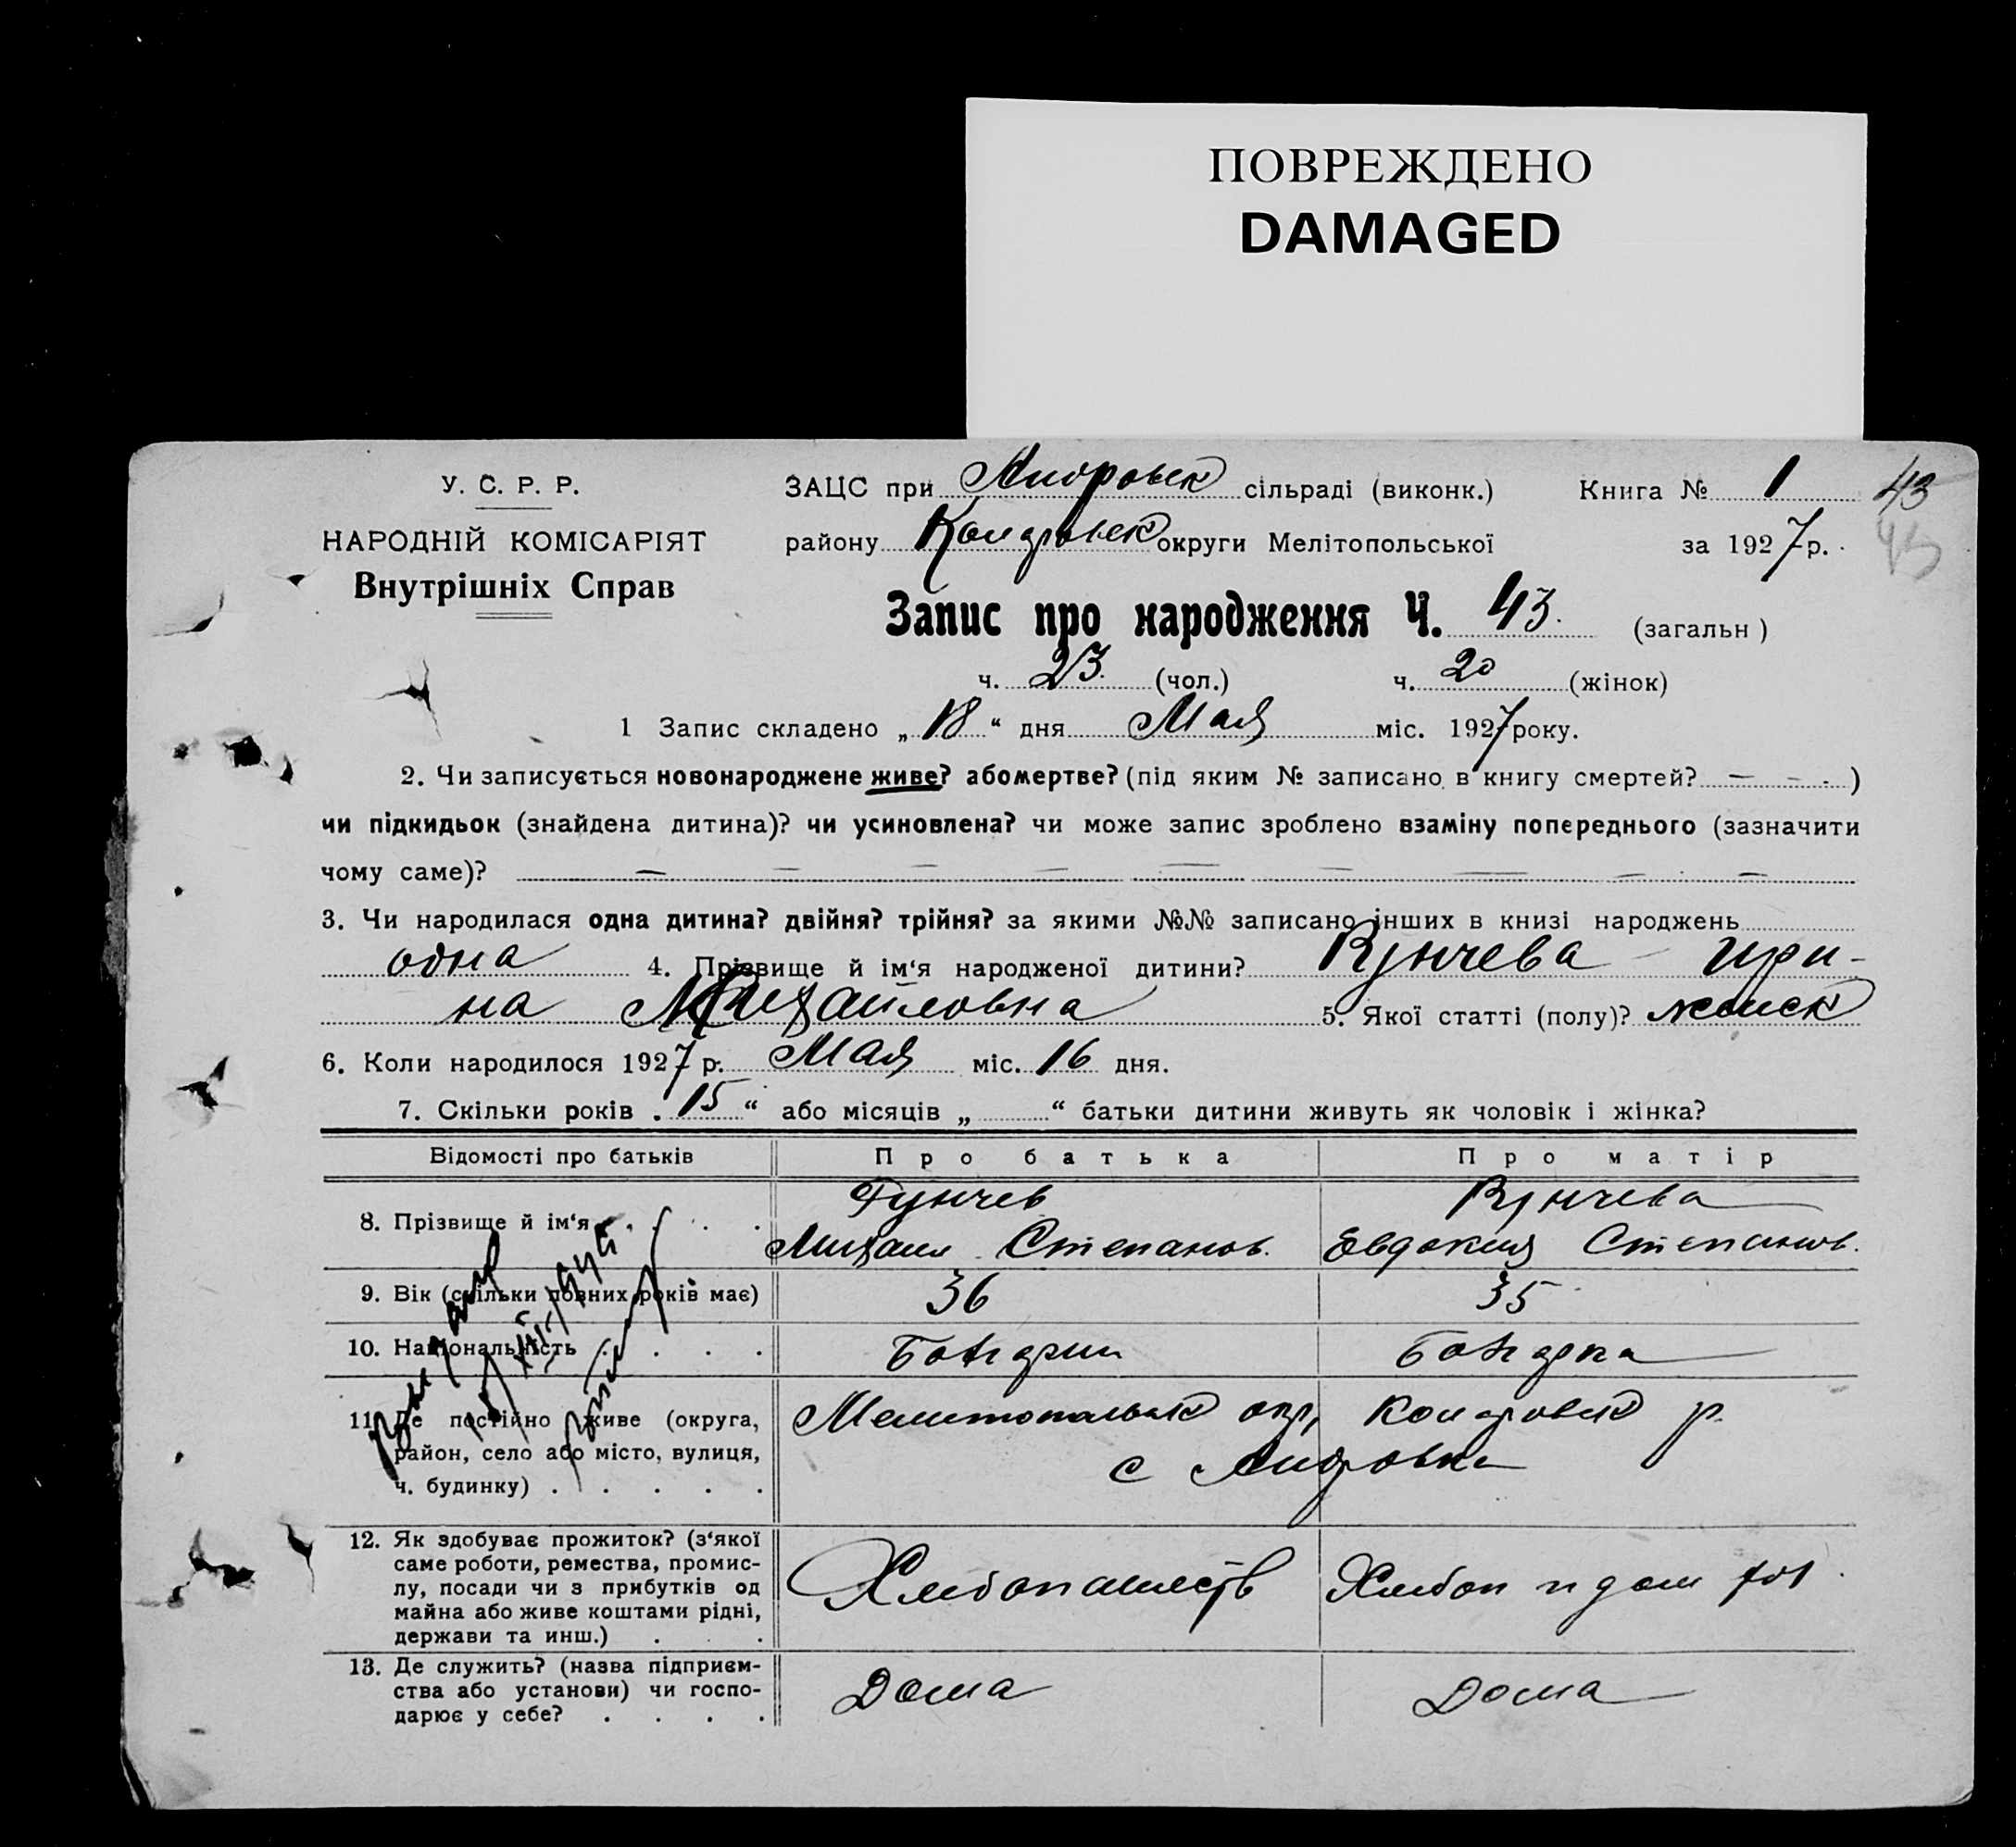 ПОВРЕЖДЕНО
DAMAGED
У. С. Р. Р.
НАРОДНІЙ КОМІСАРІЯТ
Внутрішніх Справ
ЗАЦС при сільраді (виконк.) Книга № 1 43
району округи Мелітопольської за 1927 р. 43
Запис про народження Ч. 43. (загальн)
ч. 23. (чол.) ч. 20 (жінок)
1 Запис складено „18“ дня Мая міс. 1927 року.
2. Чи записується новонароджене живе? або мертве? (під яким № записано в книгу смертей? — — -)
чи підкидьок (знайдена дитина)? чи усиновлена? чи може запис зроблено взаміну попереднього (зазначити
чому саме)? — — — — — — — — —
3. Чи народилася одна дитина? двійня? трійня? за якими №№ записано інших в книзі народжень
одна 4. Прізвище й ім‘я народженої дитини? Ири-
на Михайловна 5. Якої статті (полу)? женск
6. Коли народилося 1927 р. Мая міс. 16 дня.
7. Скільки років „15“ або місяців „ “ батьки дитини живуть як чоловік і жінка?
Відомості про батьків Про батька Про матір
8. Прізвище й ім‘я . . . .
Михаил Степанов. Евдокия Степанов.
9. Вік (скільки повних років має) 36 35
10. Національність . . . .
11. Де постійно живе (округа, Мелитопольск окр, р.
район, село або місто, вулиця, с
ч. будинку) . . . . .
12. Як здобуває прожиток? (з‘якої
саме роботи, ремества, промис-
лу, посади чи з прибутків од Хлебопашеств Хлебоп и дом
майна або живе коштами рідні,
держави та инш.) . . .
13. Де служить? (назва підприєм-
ства або установи) чи госпо- Дома Дома
дарює у себе? . . . .